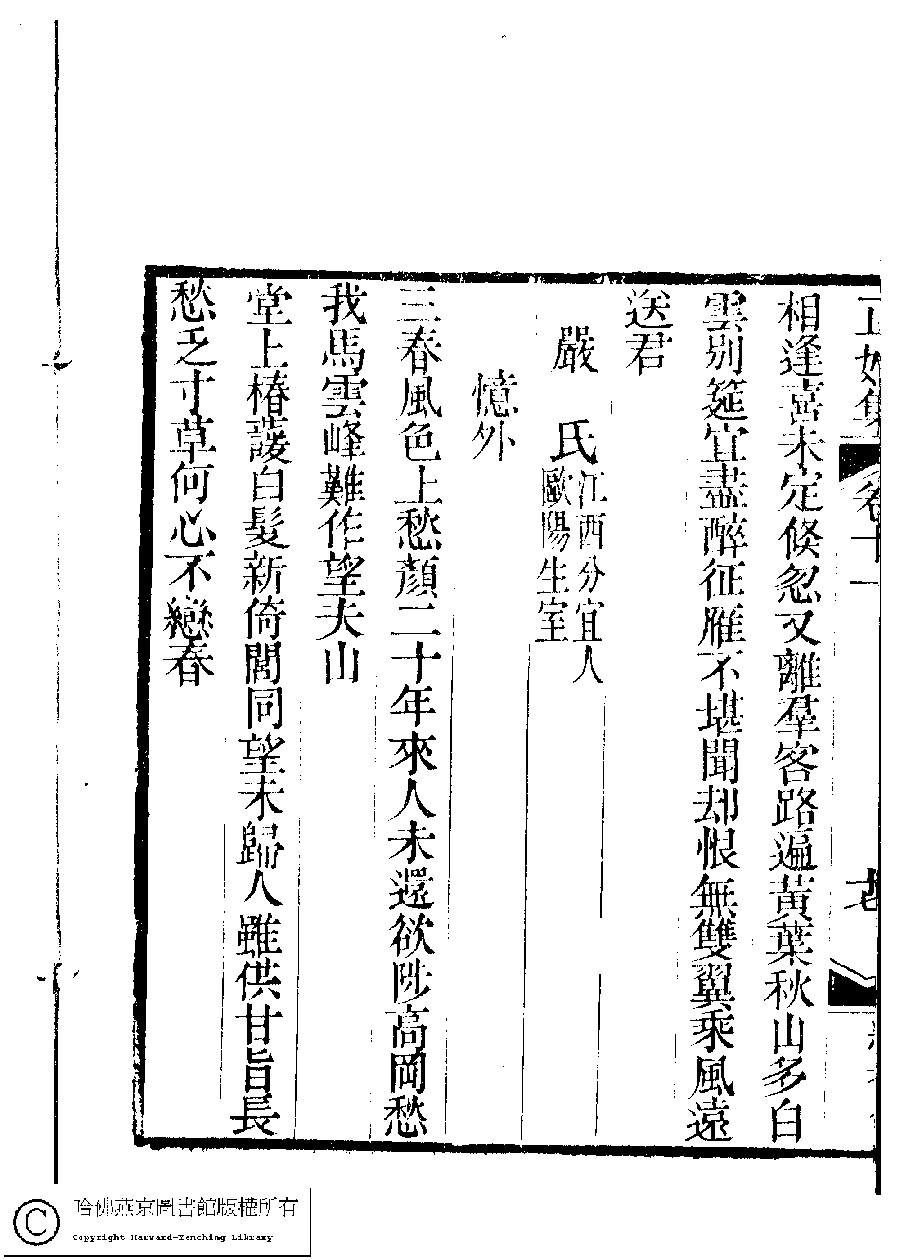 相逢喜未定倏忽又離羣客路遍黃葉秋山多白
雲別筵宜盡醉征雁不堪聞却恨無雙翼乘風遠
送君
嚴 氏 江西分宜人
歐陽生室
憶外
三春風色上愁顏二十年來人未還欲陟高岡愁
我馬雲峰難作望夫山
堂上椿諼白髮新倚閭同望未歸人雖供甘旨長
愁乏寸草何心不戀春
哈佛燕京圖書館版權所有
Copyright Harvard-Yenching Library